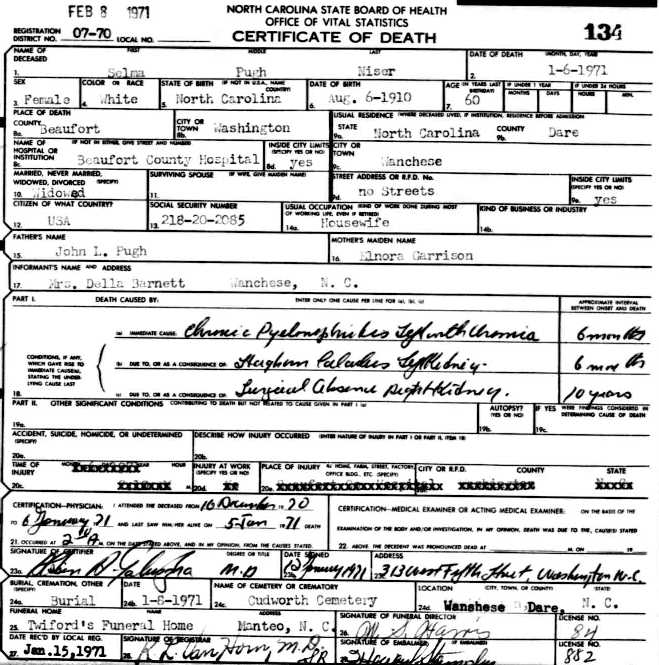 FEB 8 1971
NORTH CAROLINA STATE BOARD OF HEALTH
OFFICE OF VITAL STATISTICS
REGISTRATION DISTRICT NO. 07-70 LOCAL NO.
CERTIFICATE OF DEATH
134
NAME OF DECEASED FIRST MIDDLE LAST DATE OF DEATH (MONTH, DAY, YEAR)
1. Selma Pugh Niser 2. 1-6-1971
SEX COLOR OR RACE STATE OF BIRTH (IF NOT IN U.S.A., NAME COUNTRY) DATE OF BIRTH AGE (IN YEARS LAST BIRTHDAY) IF UNDER 1 YEAR IF UNDER 24 HOURS
MONTHS DAYS HOURS MIN.
3. Female 4. White 5. North Carolina 6. Aug. 6-1910 7. 60
PLACE OF DEATH USUAL RESIDENCE (WHERE DECEASED LIVED, IF INSTITUTION, RESIDENCE BEFORE ADMISSION
COUNTY CITY OR TOWN STATE COUNTY
8a. Beaufort 8b. Washington 9a. North Carolina 9b. Dare
NAME OF HOSPITAL OR INSTITUTION (IF NOT IN EITHER, GIVE STREET AND NUMBER) INSIDE CITY LIMITS (SPECIFY YES OR NO) CITY OR TOWN
8c. Beaufort County Hospital 8d. yes 9c. Wanchese
MARRIED, NEVER MARRIED, WIDOWED, DIVORCED (SPECIFY) SURVIVING SPOUSE (IF WIFE, GIVE MAIDEN NAME) STREET ADDRESS OR R.F.D. No. INSIDE CITY LIMITS (SPECIFY YES OR NO)
10. Widowed 11. 9d. no Streets 9e. yes
CITIZEN OF WHAT COUNTRY? SOCIAL SECURITY NUMBER USUAL OCCUPATION (KIND OF WORK DONE DURING MOST OF WORKING LIFE, EVEN IF RETIRED) KIND OF BUSINESS OR INDUSTRY
12. USA 13. 218-20-2085 14a. Housewife 14b.
FATHER'S NAME MOTHER'S MAIDEN NAME
15. John L. Pugh 16. Elnora Garrison
INFORMANT'S NAME AND ADDRESS
17. Mrs. Della Barnett Wanchese, N. C.
PART I. DEATH CAUSED BY: ENTER ONLY ONE CAUSE PER LINE FOR (a), (b), (c) APPROXIMATE INTERVAL BETWEEN ONSET AND DEATH
(a) IMMEDIATE CAUSE: Chronic Pyelonephritis Left with Uremia 6 months
CONDITIONS, IF ANY, WHICH GAVE RISE TO IMMEDIATE CAUSE(a), STATING THE UNDERLYING CAUSE LAST
(b) DUE TO, OR AS A CONSEQUENCE OF: Staghorn Calculus Left Kidney. 6 months
18. (c) DUE TO, OR AS A CONSEQUENCE OF: Surgical Absence Right Kidney. 10 years
PART II. OTHER SIGNIFICANT CONDITIONS CONTRIBUTING TO DEATH BUT NOT RELATED TO CAUSE GIVEN IN PART I (a) AUTOPSY? (YES OR NO) IF YES WERE FINDINGS CONSIDERED IN DETERMINING CAUSE OF DEATH
19a. 19b. 19c.
ACCIDENT, SUICIDE, HOMICIDE, OR UNDETERMINED (SPECIFY) DESCRIBE HOW INJURY OCCURRED (ENTER NATURE OF INJURY IN PART I OR PART II, ITEM 18)
20a. 20b.
TIME OF INJURY HOUR INJURY AT WORK (SPECIFY YES OR NO) PLACE OF INJURY At HOME, FARM, STREET, FACTORY, OFFICE BLDG., ETC. (SPECIFY) CITY OR R.F.D. COUNTY STATE
20c. M. 20d. 20e.
CERTIFICATION-PHYSICIAN: I ATTENDED THE DECEASED FROM 16 December 70 CERTIFICATION-MEDICAL EXAMINER OR ACTING MEDICAL EXAMINER: ON THE BASIS OF THE
TO 6 January 71 AND LAST SAW HIM/HER ALIVE ON 5 Jan 71 DEATH EXAMINATION OF THE BODY AND/OR INVESTIGATION, IN MY OPINION, DEATH WAS DUE TO THE CAUSE(S) STATED
21. OCCURRED AT M. ON THE DATE STATED ABOVE, AND IN MY OPINION, FROM THE CAUSES STATED 22. ABOVE THE DECEDENT WAS PRONOUNCED DEAD AT M. ON 19
SIGNATURE OF CERTIFIER DEGREE OR TITLE DATE SIGNED ADDRESS
23a. M.D 23b. January 1971 23c. 313 West Fifth Street, Washington N.C.
BURIAL, CREMATION, OTHER (Specify) DATE NAME OF CEMETERY OR CREMATORY LOCATION (CITY, TOWN, OR COUNTY) (STATE)
24a. Burial 24b. 1-8-1971 24c. Cudworth Cemetery 24d. Wanshese Dare, N. C.
FUNERAL HOME NAME ADDRESS SIGNATURE OF FUNERAL DIRECTOR LICENSE NO.
25. Twiford's Funeral Home Manteo, N. C. 26. M S Harris 84
DATE REC'D BY LOCAL REG. SIGNATURE OF REGISTRAR SIGNATURE OF EMBALMER (IF EMBALMED) LICENSE NO.
27. Jan.15,1971 28. Van Horn, M.D. 882